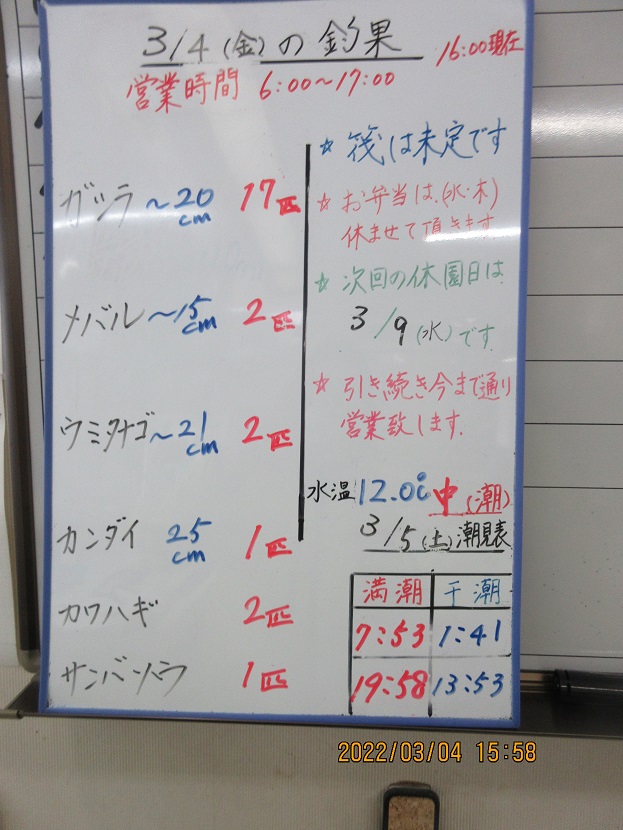 3/4(金)の釣果
16:00現在
営業時間 6:00~17:00
ガシラ ~20cm 17匹
メバル ~15cm 2匹
ウミタナゴ ~21cm 2匹
カンダイ 25cm 1匹
カワハギ 2匹
サンバソウ 1匹
☆ 筏は未定です
☆ お弁当は、(水・木)
休ませて頂きます
☆ 次回の休園日は
3/9(水)です
☆ 引き続き今まで通り
営業致します.
水温 12.0℃ 中(潮)
3/5(土)潮見表
満潮 干潮
7:53 1:41
19:58 13:53
2022/03/04 15:58